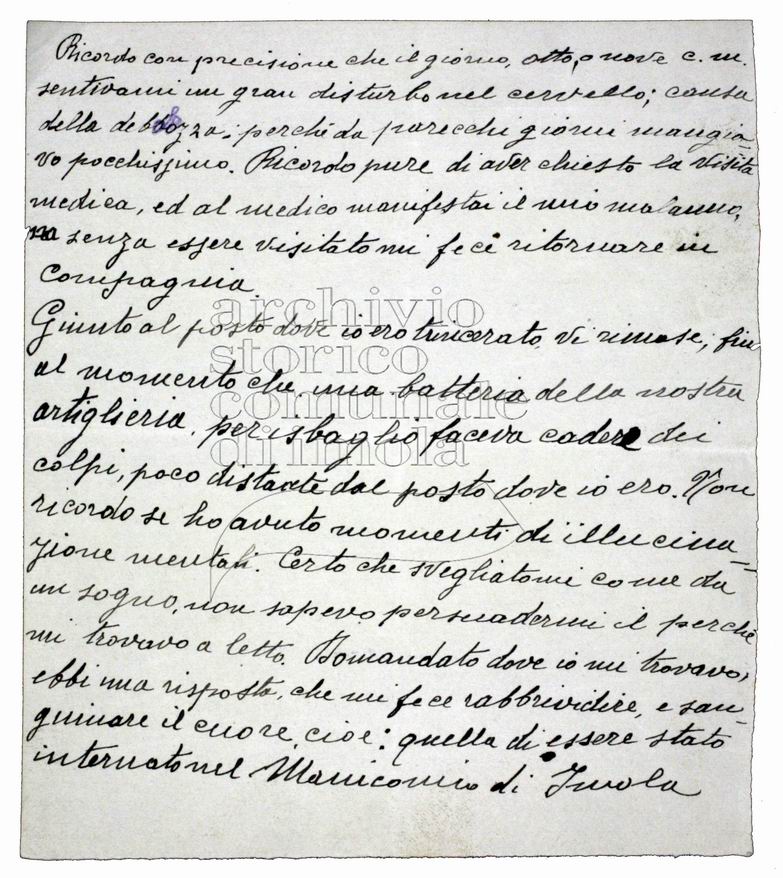 Ricordo con precisione che il giorno, otto, o nove c. m.
sentivami un gran disturbo nel cervello; causa
della debbozza; perché da parecchi giorni mangia-
vo pocchissimo. Ricordo pure di aver chiesto la visita
medica, ed al medico manifestai il mio malanno,
ma senza essere visitato mi fece ritornare in
Compagnia.
Giunto al posto dove io ero trincerato, vi rimase, fin
al momento che una batteria della nostra
artiglieria, per isbaglio faceva cadere dei
colpi, poco distante dal posto dove io ero. Non
ricordo se ho avuto momenti di illucina-
zione mentali. Certo che svegliatomi come da
un sogno, non sapevo persuadermi il perché
mi trovavo a letto. Domandato dove io mi trovavo,
ebbi una risposta, che mi fece rabbrividire, e san-
guinare il cuore, cioè: quella di essere stato
internato nel Manicomio di Imola
archivio
storico
comunale
di imola